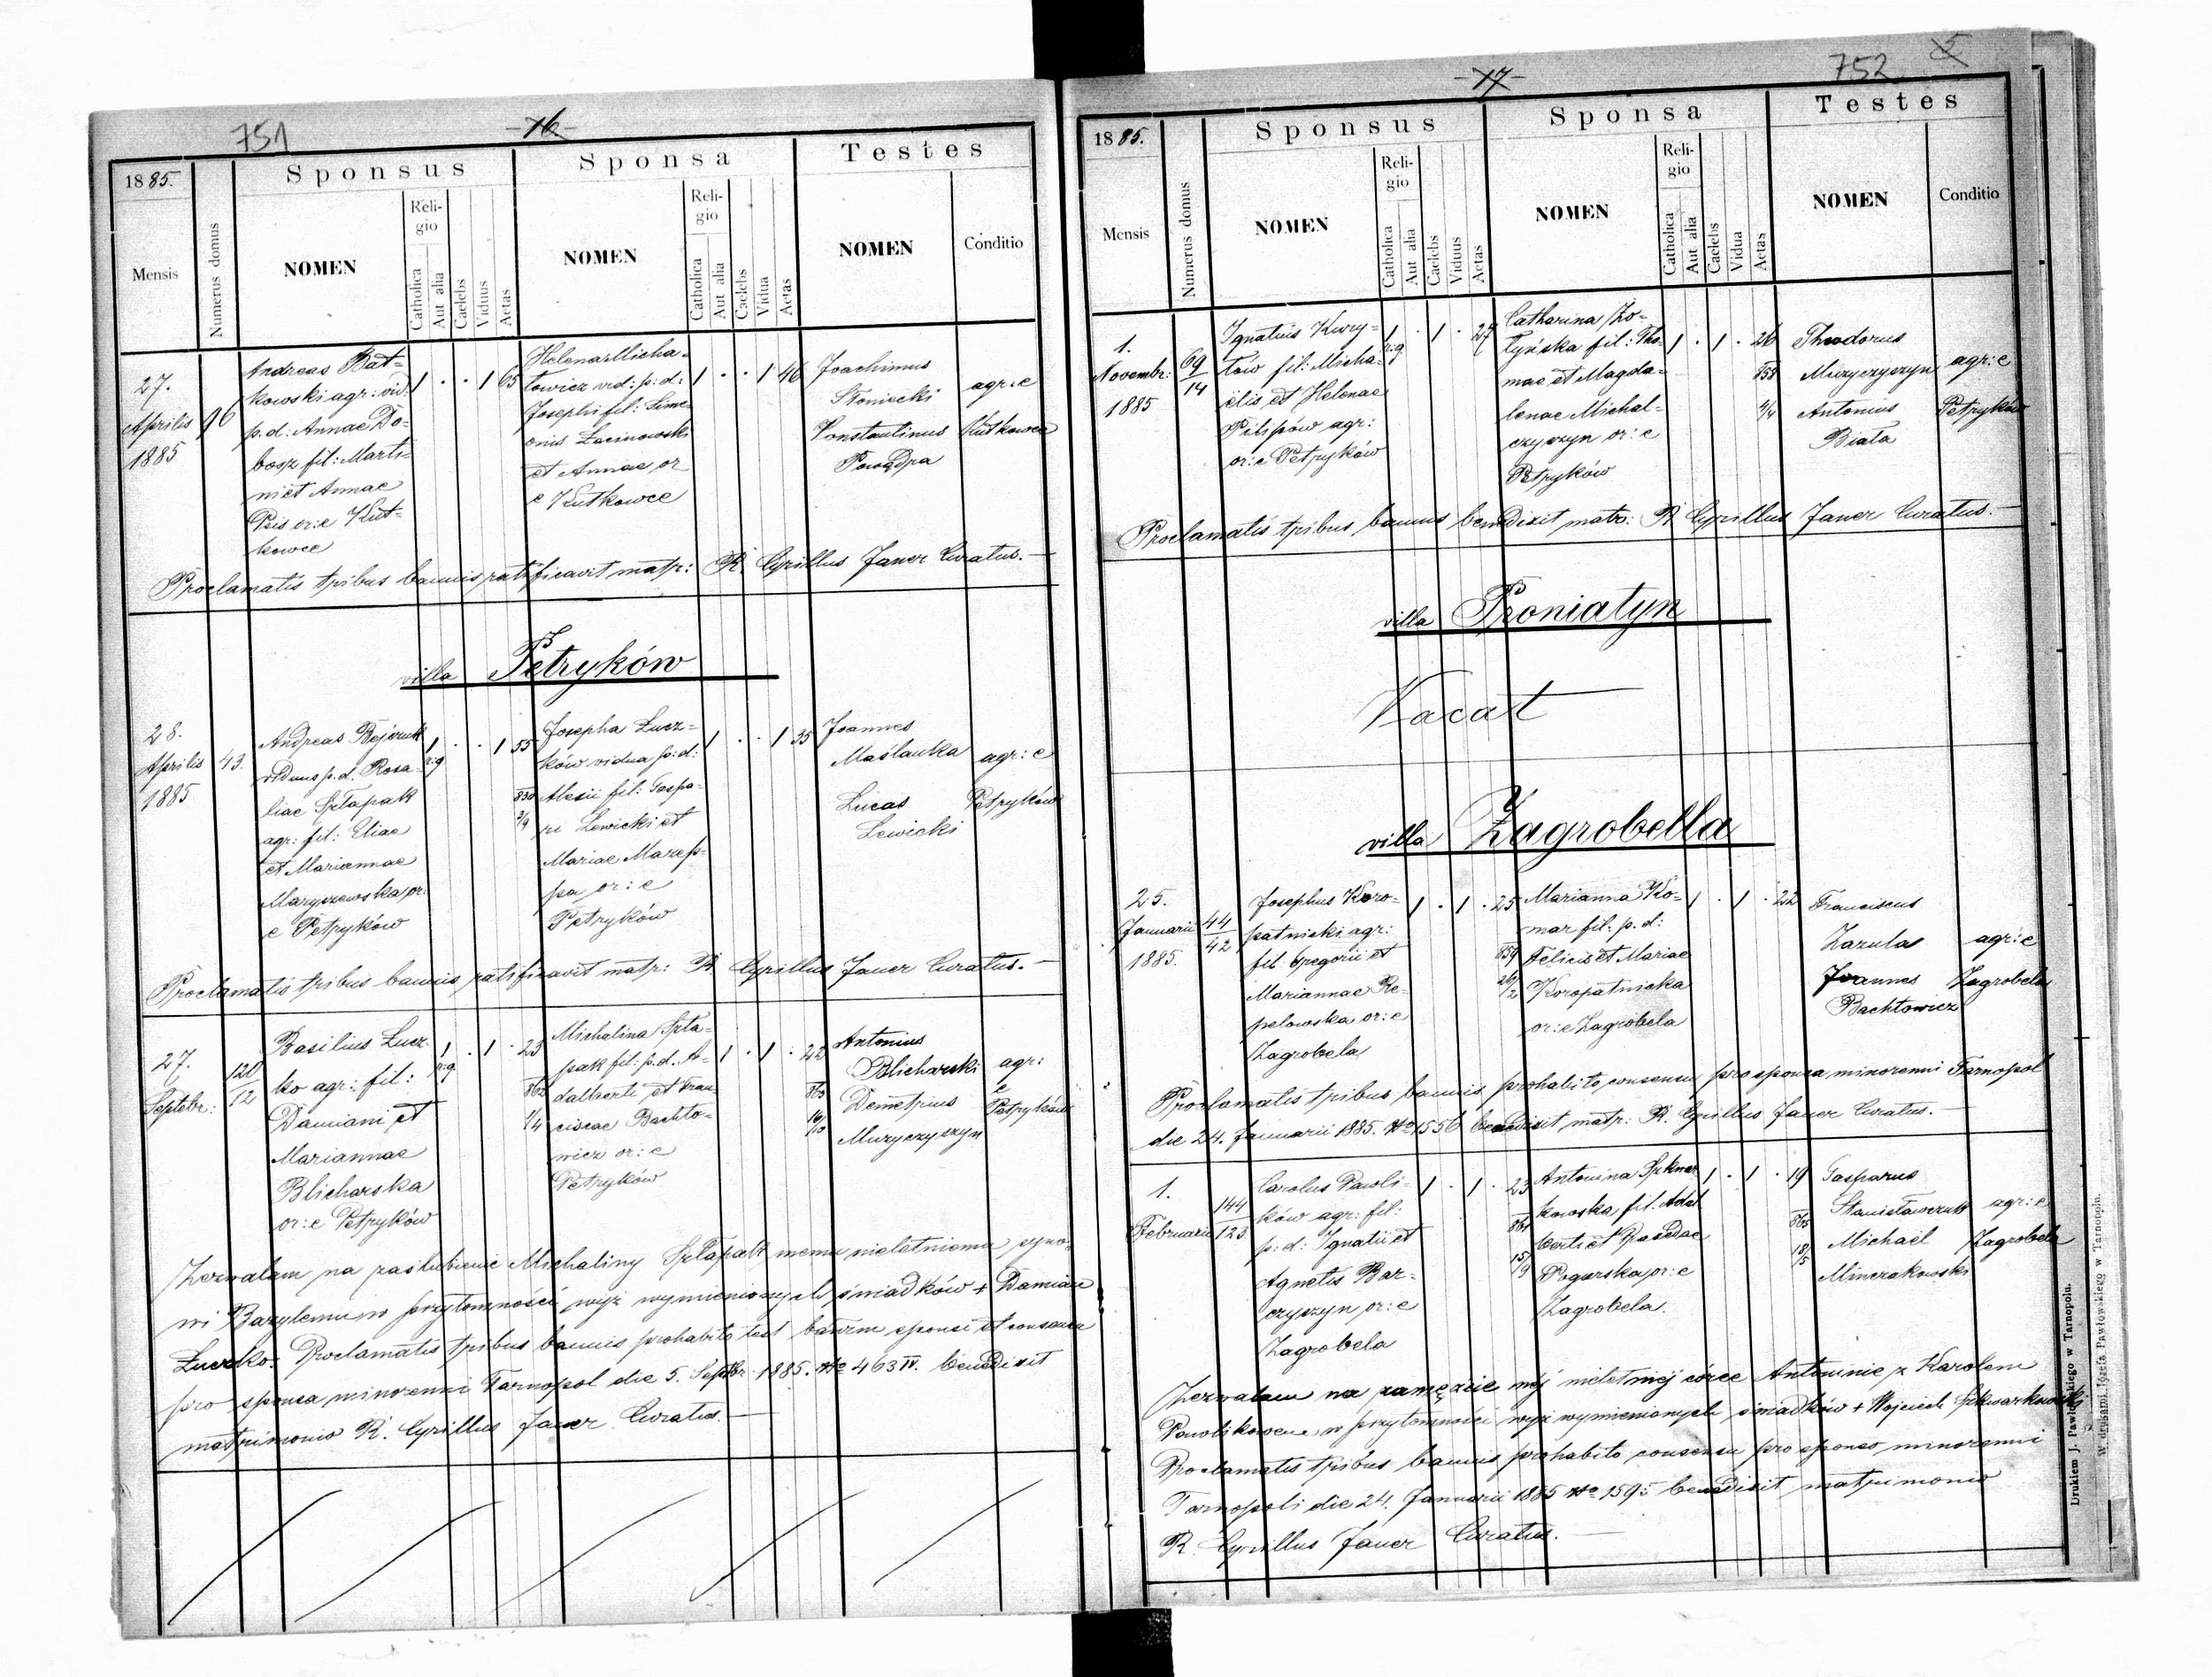 751
-16-
1885.
Mensis
Numerus domus
Sponsus
NOMEN
Religio
Catholica
Aut alia
Caelebs
Viduus
Aetas
Sponsa
NOMEN
Religio
Catholica
Aut alia
Caelebs
Vidua
Aetas
Testes
NOMEN
Conditio
27.
Aprilis
1885
16
Andreas Bat-
kowski agr: vid:
p.d: Annae Do-
bosz fil: Marti-
ni et Annae
Psis or: e Kut-
kowce
1 . . 1 65
Helena Micha-
towicz vid: p: d:
Josephi fil: Sime-
onis Lacinowski
et Annae or
e Kutkowce
1 . . 1 46
Joachimus
Stoniecki
Constantinus
Powądra
agr: e
Kutkowce
Proclamatis tribus bannis ratificavit matr: R. Cyrillus Janer Curatus.
villa Petryków
28.
Aprilis
1885
43.
Andreas Bejcruk
viduus p. d. Rosa-
liae Szłapak
agr: fil: Eliae
et Mariannae
Maryszewska or:
e Petryków
1 . . 1 55
r: g
Josepha Łucz-
ków vidua p: d:
Alexii fil: Gaspa-
ri Lewicki et
Mariae Mazep-
pa or: e
Petryków
1 . . 1 35
850
3/9
Joannes
Maślanka
Lucas
Lewicki
agr: e
Petryków
Proclamatis tribus bannis ratificavit matr: R. Cyrillus Janer Curatus.
27.
Septebr:
120
12
Basilius Łucz-
ko agr: fil:
Damiani et
Mariannae
Blicharska
or: e Petryków
1 . 1 . 23
r: g
862
1/4
Michalina Szła-
pak fil: p. d. A-
dalberti et Fran-
ciscae Bachto-
wicz or: e
Petryków
1 . 1 . 22
863
10/10
Antonius
Blicharski
Demetrius
Muzyczyszyn
agr:
e
Petryków
Zezwalam na zaślubienie Michaliny Szłapak memu nieletniemu syno-
wi Bazylemu w przytomności wyż wymienionych świadków + Damian
Łuczko. Proclamatis tribus bannis prohabito test banm sponsi et consensu
pro sponsa minorenni Tarnopol die 5. Septbr: 1885. No 463 IV. benedixit
matrimonio R. Cyrillus Janer Curatus.
752
-17-
1885.
Mensis
Numerus domus
Sponsus
NOMEN
Religio
Catholica
Aut alia
Caelebs
Viduus
Aetas
Sponsa
NOMEN
Religio
Catholica
Aut alia
Caelebs
Vidua
Aetas
Testes
NOMEN
Conditio
1.
Novembr:
1885
69
14
Ignatius Kury-
łów fil: Micha-
elis et Helenae
Pilipów agr:
or: e Petryków
1 . 1 . 27
r: g
Catharina Żo-
łyńska fil: Tho-
mae et Magda-
lenae Michal-
czyszyn or: e
Petryków
1 . 1 . 26
858
4/4
Theodorus
Muzyczyszyn
Antonius
Biała
agr: e
Petryków
Proclamatis tribus bannis benedixit matr: R Cyrillus Janer Curatus.
villa Proniatyn
Vacat
villa Zagrobella
25.
Januarii
1885.
44
42
Josephus Koro-
patnicki agr:
fil. Gregorii et
Mariannae Re-
pelowska or: e
Zagrobela
1 . 1 . 25
859
26/2
Marianna Ko-
mar fil: p. d:
Felicis et Mariae
Koropatnicka
or: e Zagrobela
1 . 1 . 22
Franciscus
Zarulas
Joannes
Bachtowicz
agr: e
Zagrobela
Proclamatis tribus bannis, prohabito consensu pro sponsa minorenni Tarnopol
die 24. Januarii 1885. No 1556 benedixit matr: R. Cyrillus Janer Curatus.
1.
Februarii
144
123
Carolus Pawoli-
ków agr: fil:
p: d: Ignatii et
Agnetis Bar-
czyszyn or: e
Zagrobela
1 . 1 . 23
861
15/9
Antonina Szkwar-
kowska fil. Adal-
berti et
Pogorska or: e
Zagrobela.
1 . 1 . 19
865
18/5
Gasparus
Stanisławczuk
Michaël
Minczakowski
agr: e
Zagrobela
Zezwalam na zamęzcie mej nieletniej córce Antoninie z Karolem
Pawolikowem w przytomności wyż wymienionych świadków + Wojciech Szkwarkowski
Proclamatis tribus bannis prohabito consensu pro sponso minorenni
Tarnopoli die 24. Januarii 1885 No 1595 benedixit matrimonio
R. Cyrillus Janer Curatus.
Drukiem J. Pawłowskiego w Tarnopolu.
W drukarni Józefa Pawłowskiego w Tarnopolu.